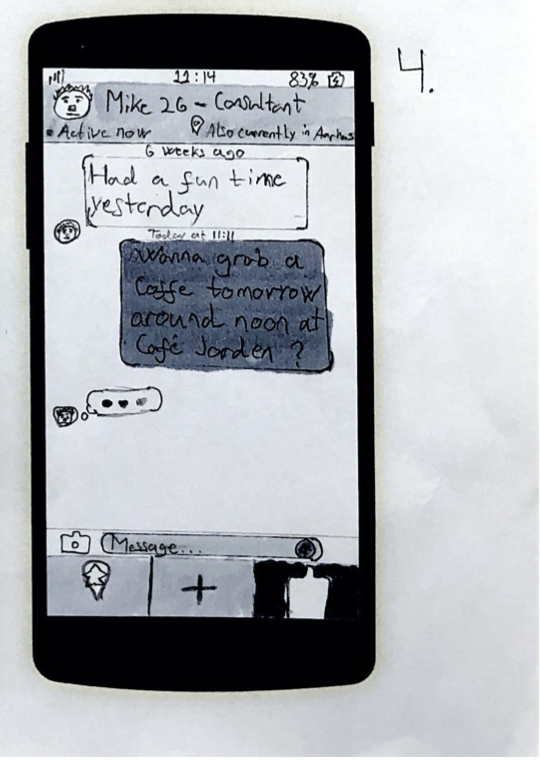 4.
11:14 83%
Mike 26 - Consultant
Active now Also currently in Aarhus
6 weeks ago
Had a fun time
yesterday
Today at 11:11
Wanna grab a
Caffe tomorrow
around noon at
Café Jorden ?
Message...